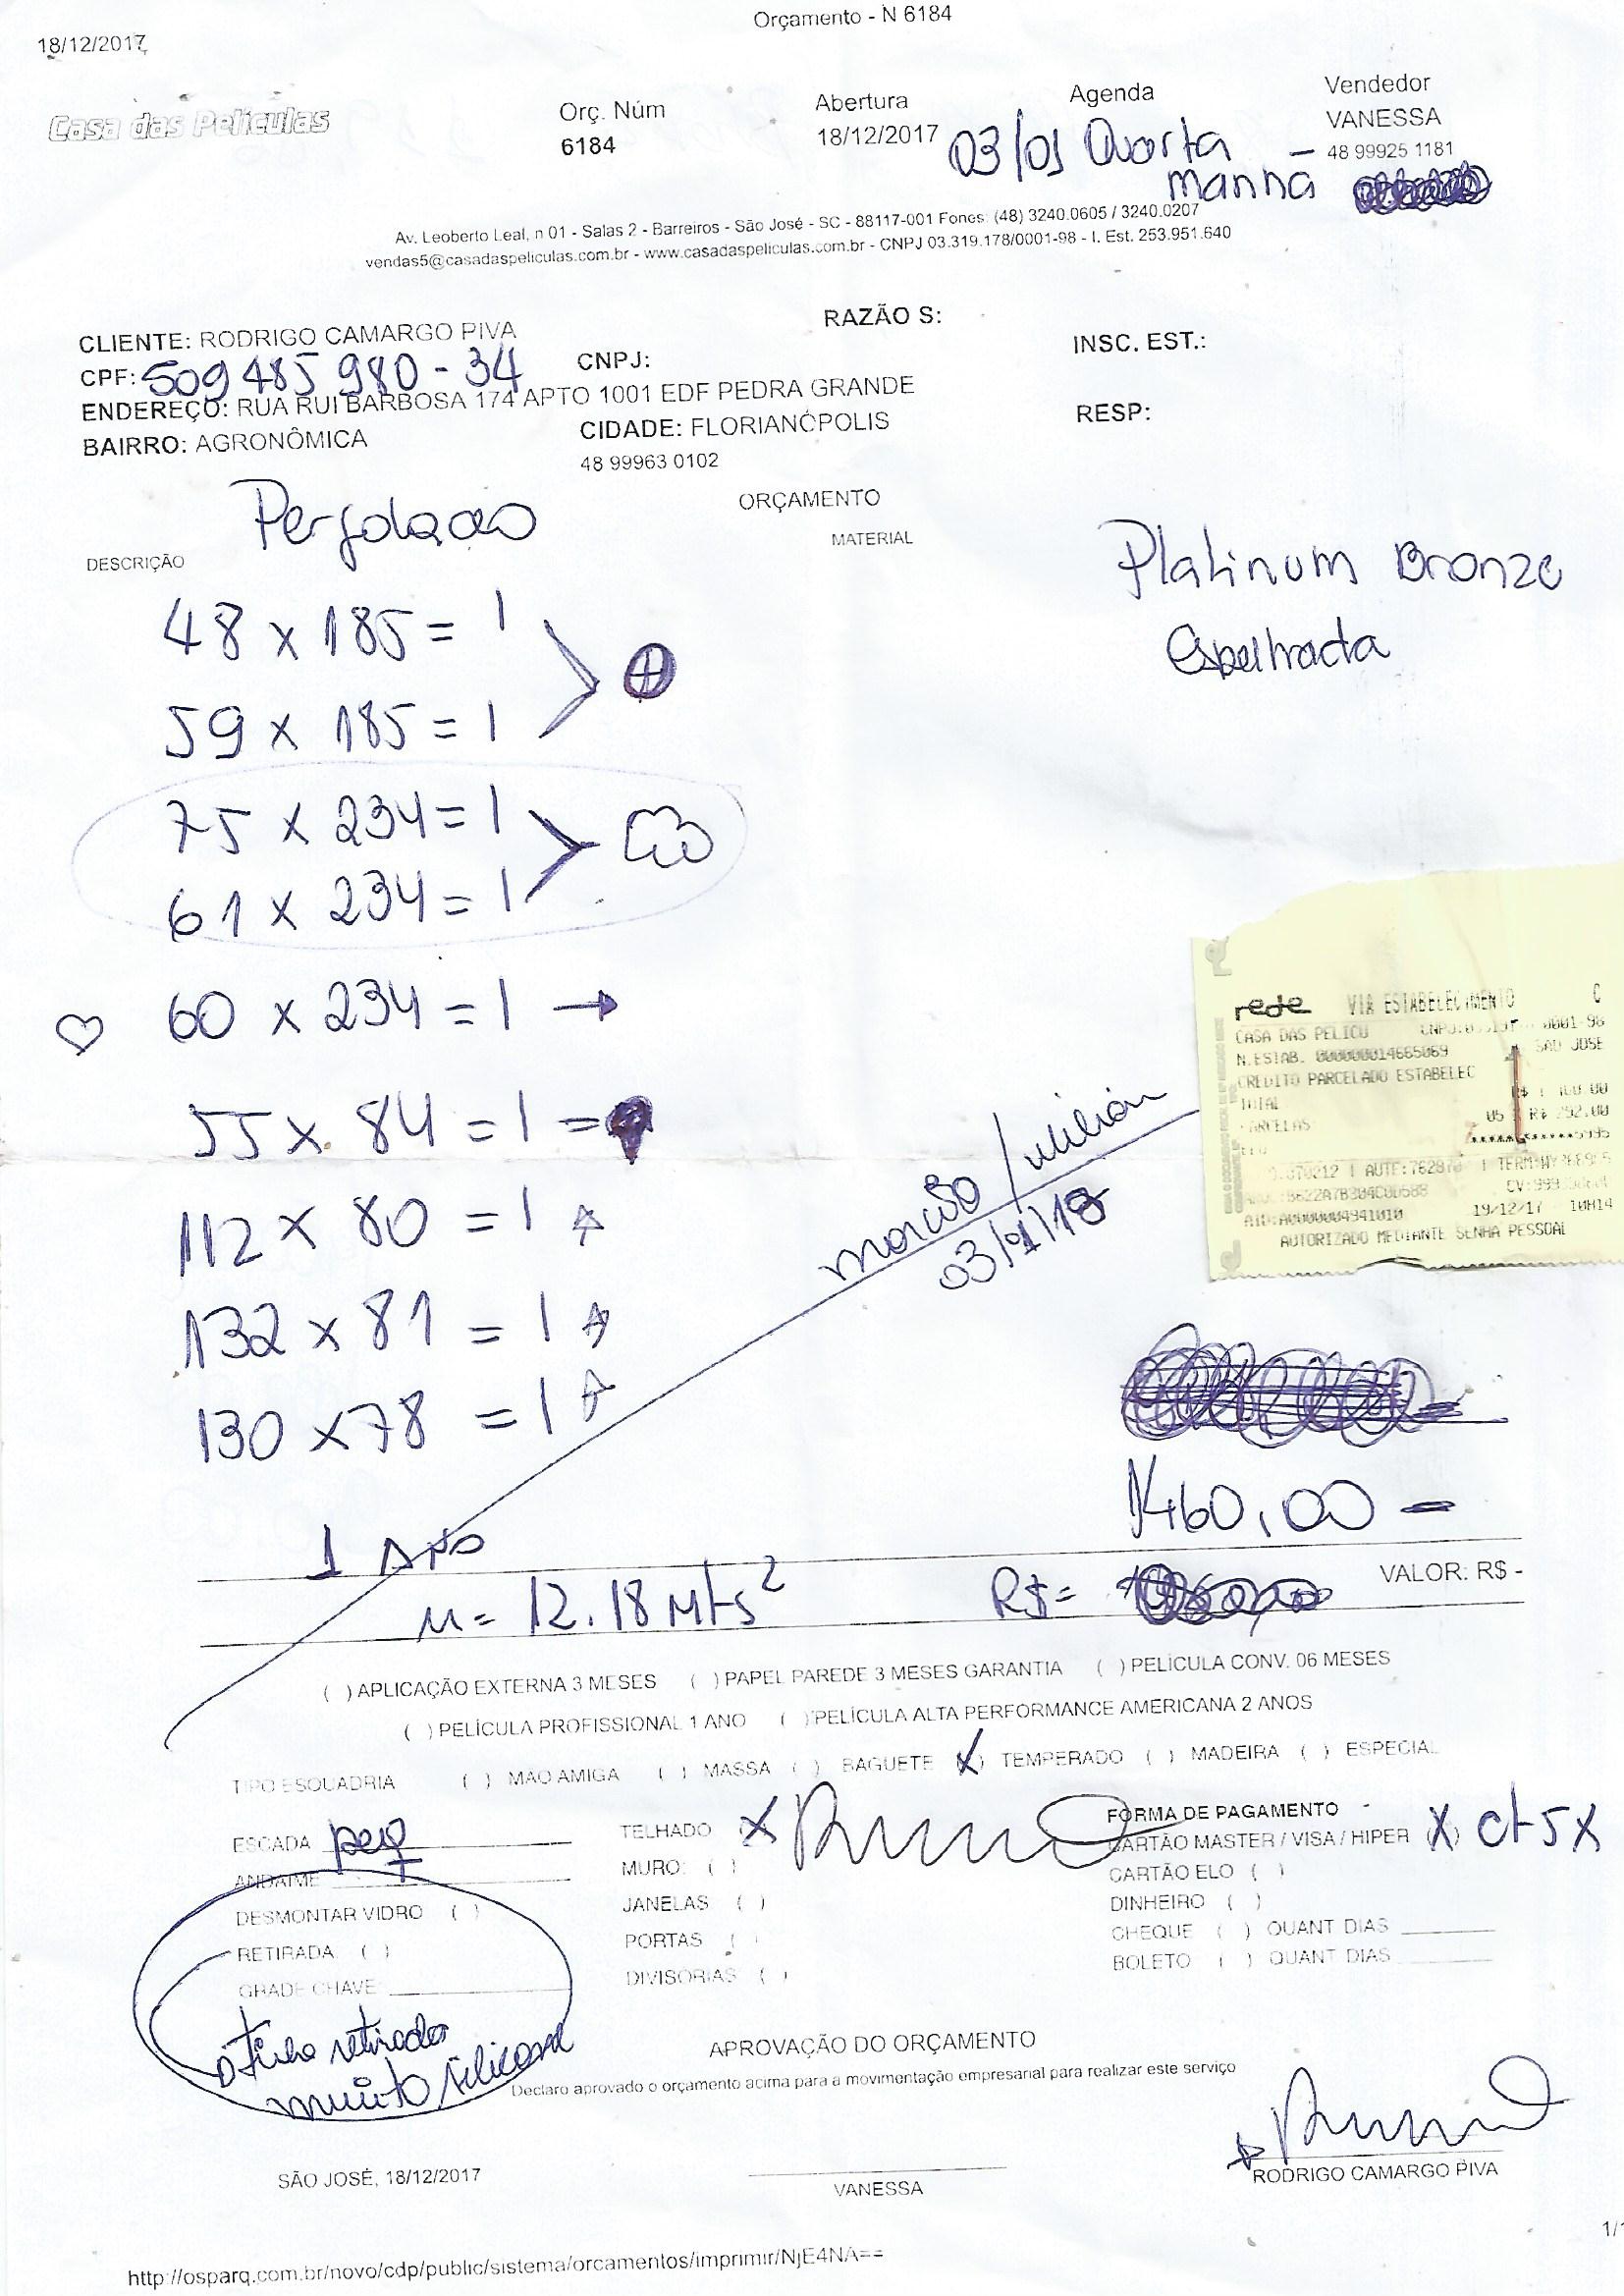 Orçamento - N 6184
18/12/2017
Casa das Películas
Orç. Núm
6184
Abertura
18/12/2017
Agenda
03/01 Quarta -
manhã
Vendedor
VANESSA
48 99925 1181
Av. Leoberto Leal, n 01 - Salas 2 - Barreiros - São José - SC - 88117-001 Fones: (48) 3240.0605 / 3240.0207
vendas5@casadaspeliculas.com.br - www.casadaspeliculas.com.br - CNPJ 03.319.178/0001-98 - I. Est. 253.951.640
CLIENTE: RODRIGO CAMARGO PIVA
RAZÃO S:
INSC. EST.:
CPF: 509 485 980-34
CNPJ:
ENDEREÇO: RUA RUI BARBOSA 174 APTO 1001 EDF PEDRA GRANDE
RESP:
BAIRRO: AGRONÔMICA
CIDADE: FLORIANÓPOLIS
48 99963 0102
ORÇAMENTO
DESCRIÇÃO
MATERIAL
Platinum Bronze
48 x 185 = 1
59 x 185 = 1
75 x 234 = 1
61 x 234 = 1
60 x 234 = 1
55 x 84 = 1
112 x 80 = 1
132 x 81 = 1
130 x 78 = 1
03/01/18
rede VIA ESTABELECIMENTO C
CASA DAS PELICU
N.ESTAB. 000000014665069 SAO JOSE
CREDITO PARCELADO ESTABELEC
TOTAL
05 R$ 292,00
19/12/17 10H14
AUTORIZADO MEDIANTE SENHA PESSOAL
1460,00 -
1 Ano
M = 12.18 Mts²
R$ =
VALOR: R$ -
( ) APLICAÇÃO EXTERNA 3 MESES ( ) PAPEL PAREDE 3 MESES GARANTIA ( ) PELÍCULA CONV. 06 MESES
( ) PELÍCULA PROFISSIONAL 1 ANO ( ) PELÍCULA ALTA PERFORMANCE AMERICANA 2 ANOS
TIPO ESQUADRIA ( ) MAO AMIGA ( ) MASSA ( ) BAGUETE (X) TEMPERADO ( ) MADEIRA ( ) ESPECIAL
ESCADA peq
ANDAIME
DESMONTAR VIDRO ( )
RETIRADA ( )
GRADE CHAVE:
ñ tinha retirada
muito silicone
TELHADO (X)
MURO: ( )
JANELAS ( )
PORTAS ( )
DIVISORIAS ( )
FORMA DE PAGAMENTO
CARTÃO MASTER / VISA / HIPER (X) ct 5x
CARTÃO ELO ( )
DINHEIRO ( )
CHEQUE ( ) QUANT DIAS
BOLETO ( ) QUANT DIAS
APROVAÇÃO DO ORÇAMENTO
Declaro aprovado o orçamento acima para a movimentação empresarial para realizar este serviço
SÃO JOSÉ, 18/12/2017
VANESSA
RODRIGO CAMARGO PIVA
1/1
http://osparq.com.br/novo/cdp/public/sistema/orcamentos/imprimir/NjE4NA==